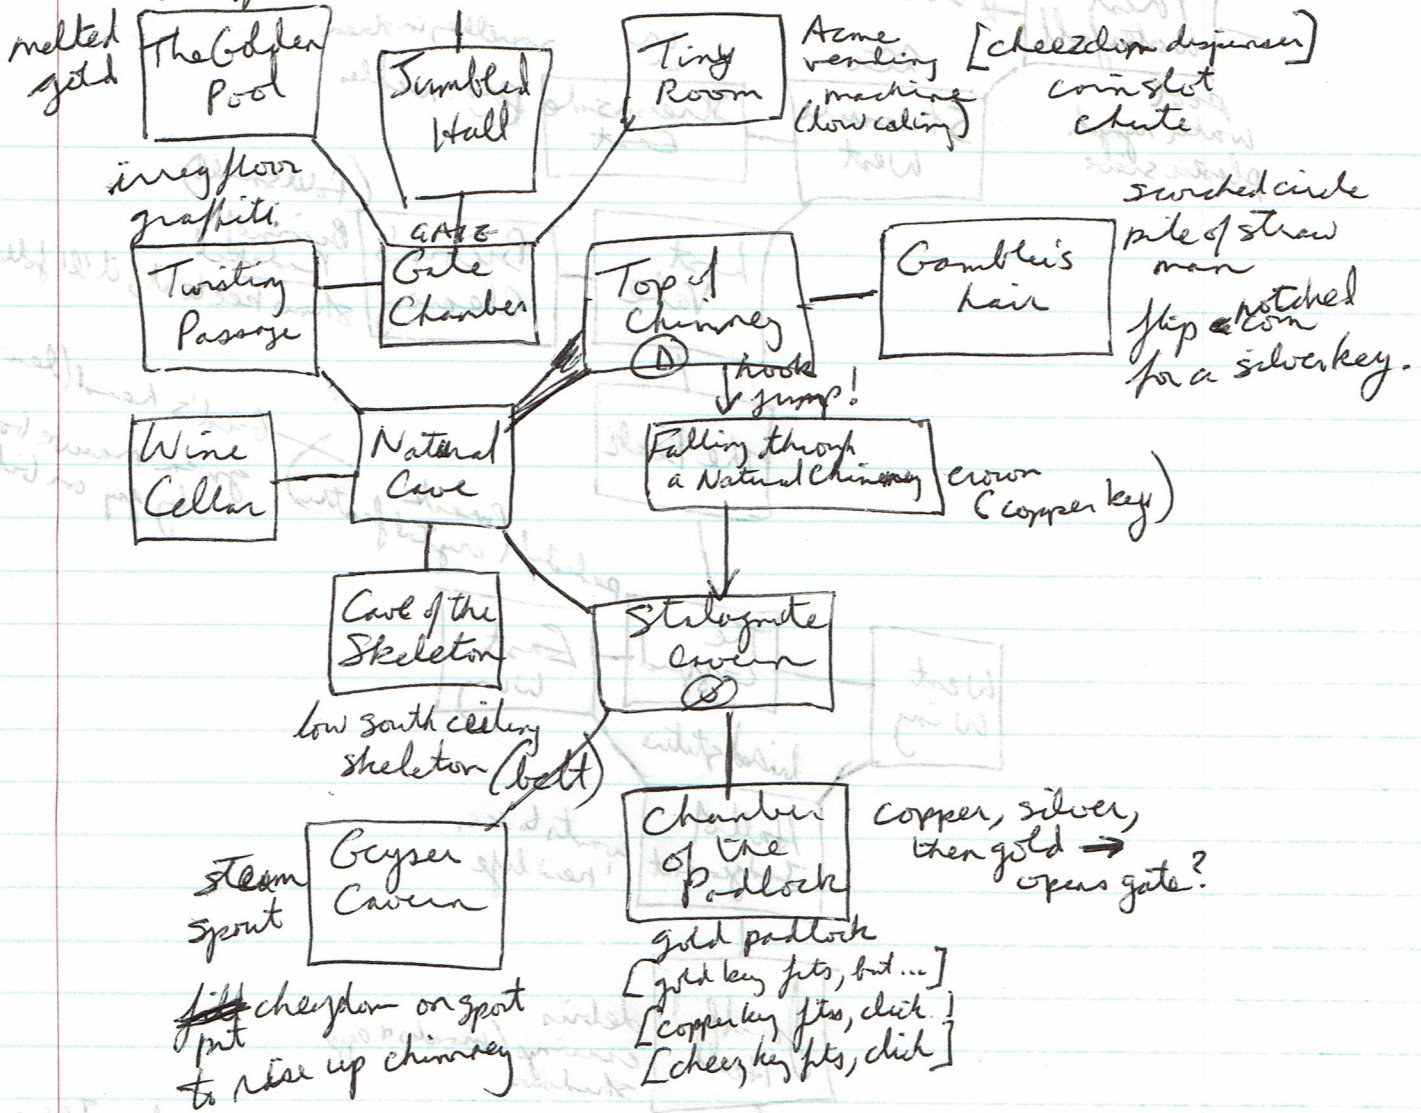 melted
gold
The Golden
Pool
Jumbled
Hall
Tiny
Room
Acme
vending
machine
(low ceiling)
[cheezdom dispenser]
coin slot
chute
irreg floor
graffiti
GATE
Gate
Chamber
Twisting
Passage
Top of
Chimney
D
Gambler's
Lair
scorched circle
pile of straw
man
flip a notched
coin
for a silver key.
hook
jump!
Wine
Cellar
Natural
Cave
Falling through
a Natural Chimney
crown
(copper key)
Cave of the
Skeleton
low south ceiling
skeleton (belt)
Stalagmite
Cavern
steam
spout
Geyser
Cavern
Chamber
of the
Padlock
copper, silver,
then gold →
opens gate?
gold padlock
[gold key fits, but...]
[copper key fits, click!]
[cheez key fits, click]
put cheezdom on spout
to rise up chimney